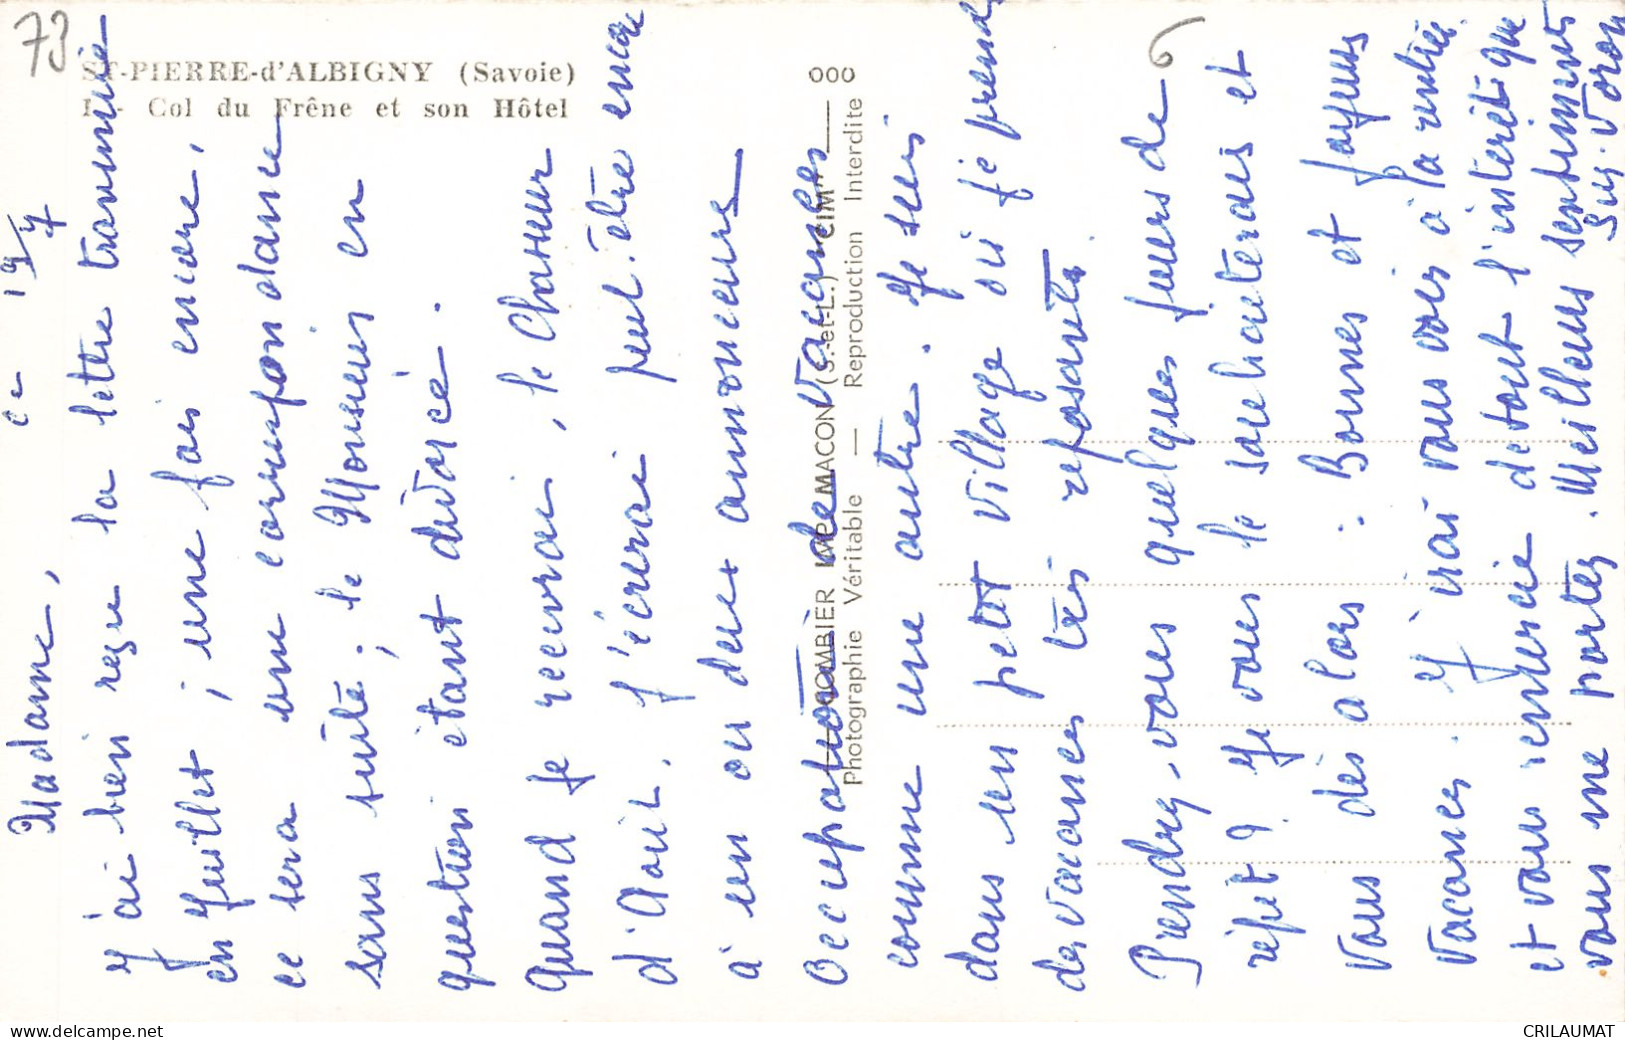 73
ST-PIERRE-d'ALBIGNY (Savoie)
Col du Frêne et son Hôtel
ooo
COMBIER IMP. MACON (S.-et-L.) "CIM"
Photographie Véritable — Reproduction Interdite
6
ce 19/7
Madame,
J'ai bien reçu la lettre transmise
en Juillet ; une fois encore,
ce sera une correspondance
sans suite ; le Monsieur en
question étant divorcé.
Quand je recevrai, le Chasseur
d'Août, j'écrirai peut-être encore
à un ou deux annonceurs
Occupation de vacances
comme une autre. Je suis
dans un petit village où je prends
des vacances très reposantes.
Prendrez-vous quelques jours de
répit ? Je vous le souhaiterais et
vous dès alors : Bonnes et joyeuses
vacances. J'irai vous voir à la rentrée
et vous remercie de tout l'intérêt que
vous me portez. Meilleurs sentiments
www.delcampe.net
CRILAUMAT